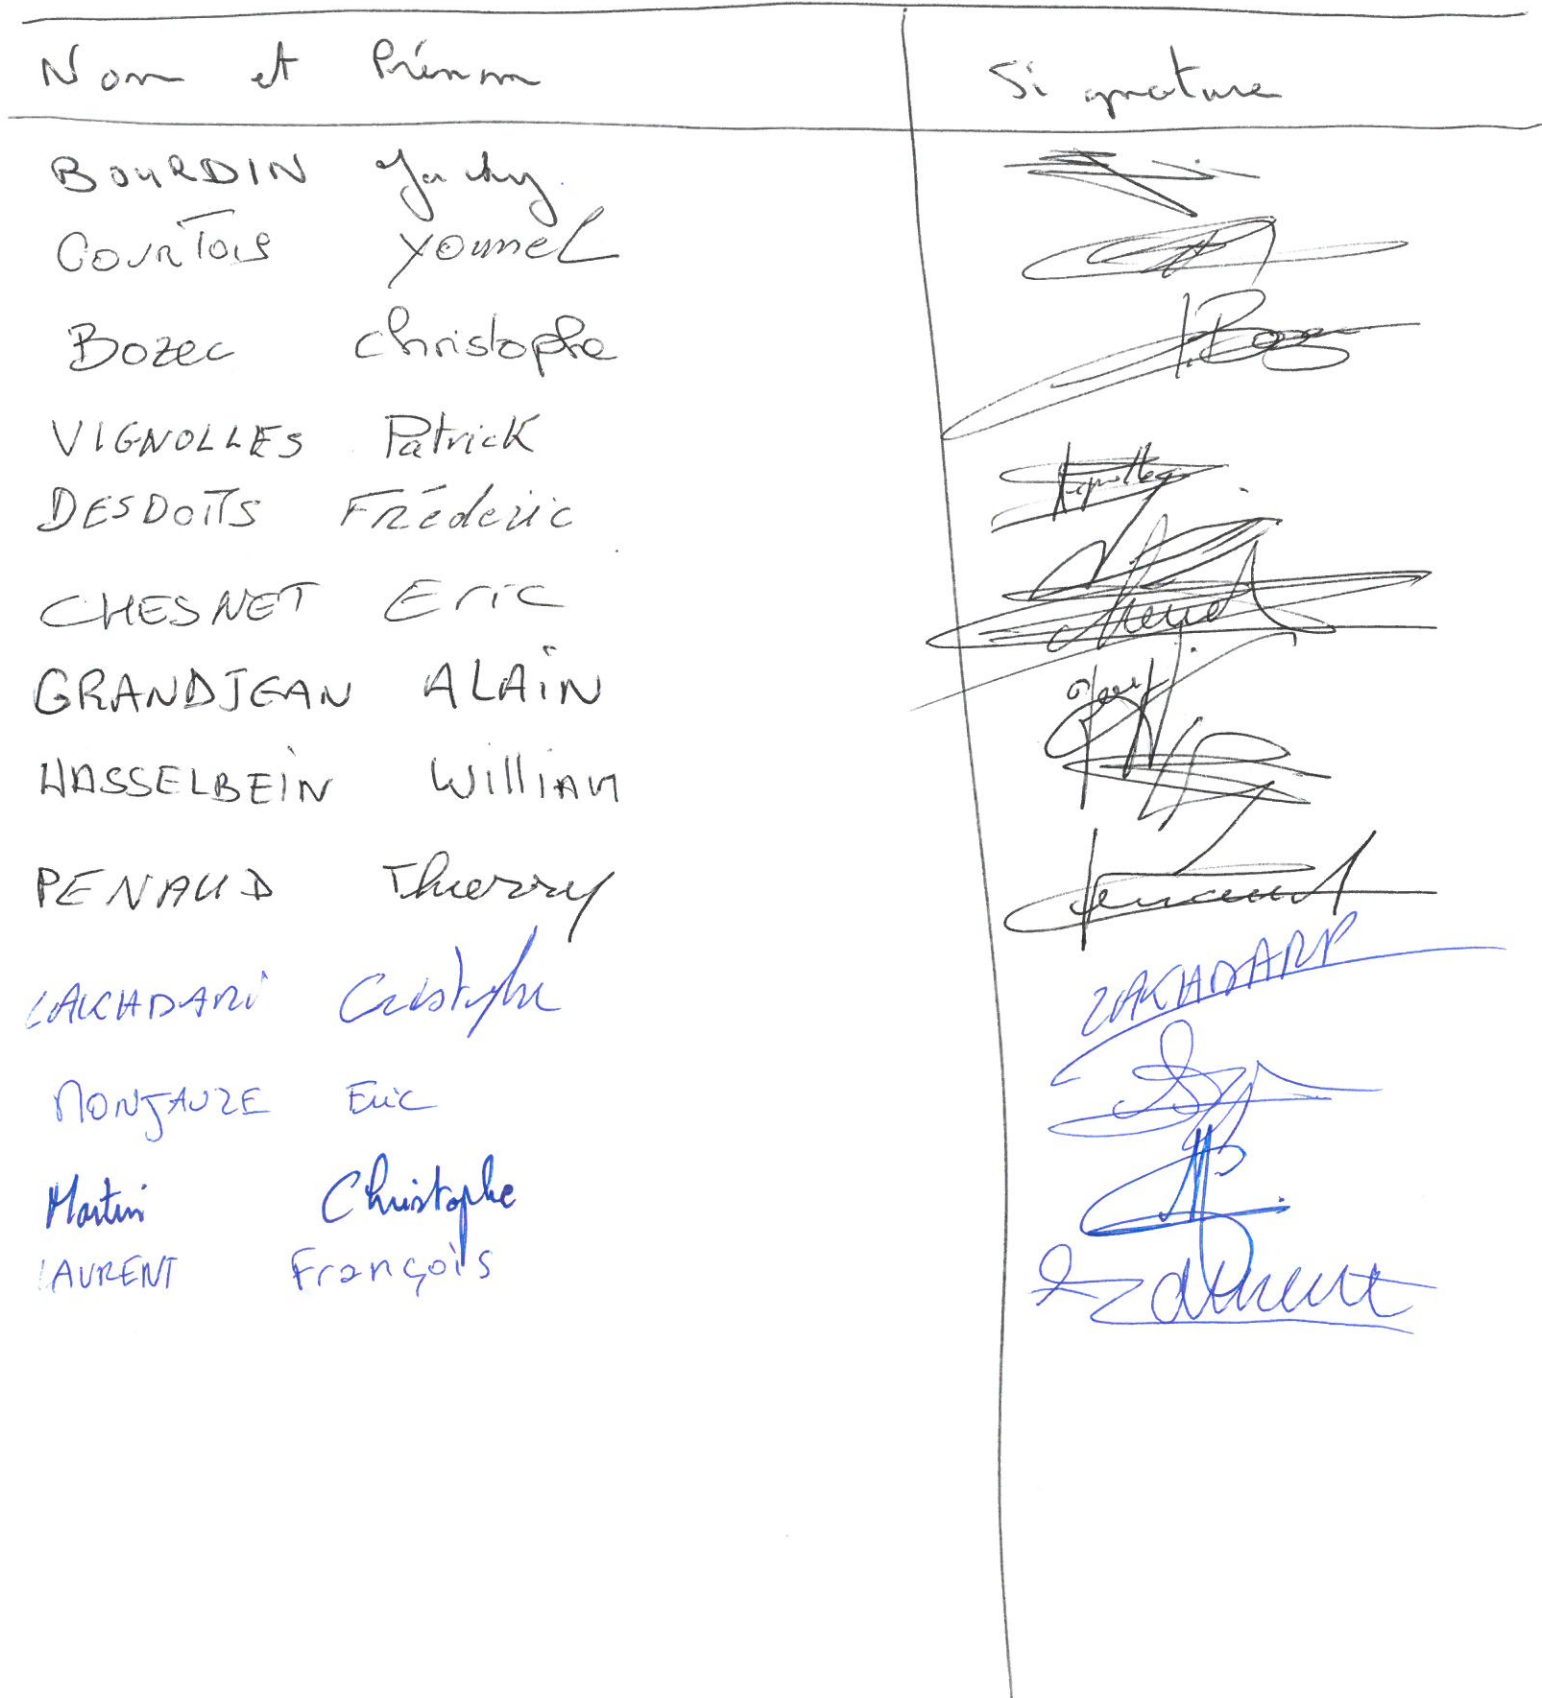 Nom et Prénom Signature
BOURDIN Jacky
COURTOIS YOUNEL
Bozec Christophe
VIGNOLLES Patrick
DESDOITS Fréderic
CHESNET Eric
GRANDJEAN ALAIN
HASSELBEIN WILLIAM
PENAUD Thierry
LAKHDARI Christophe LAKHDARI
MONJAUZE Eric
Martin Christophe
LAURENT François Laurent